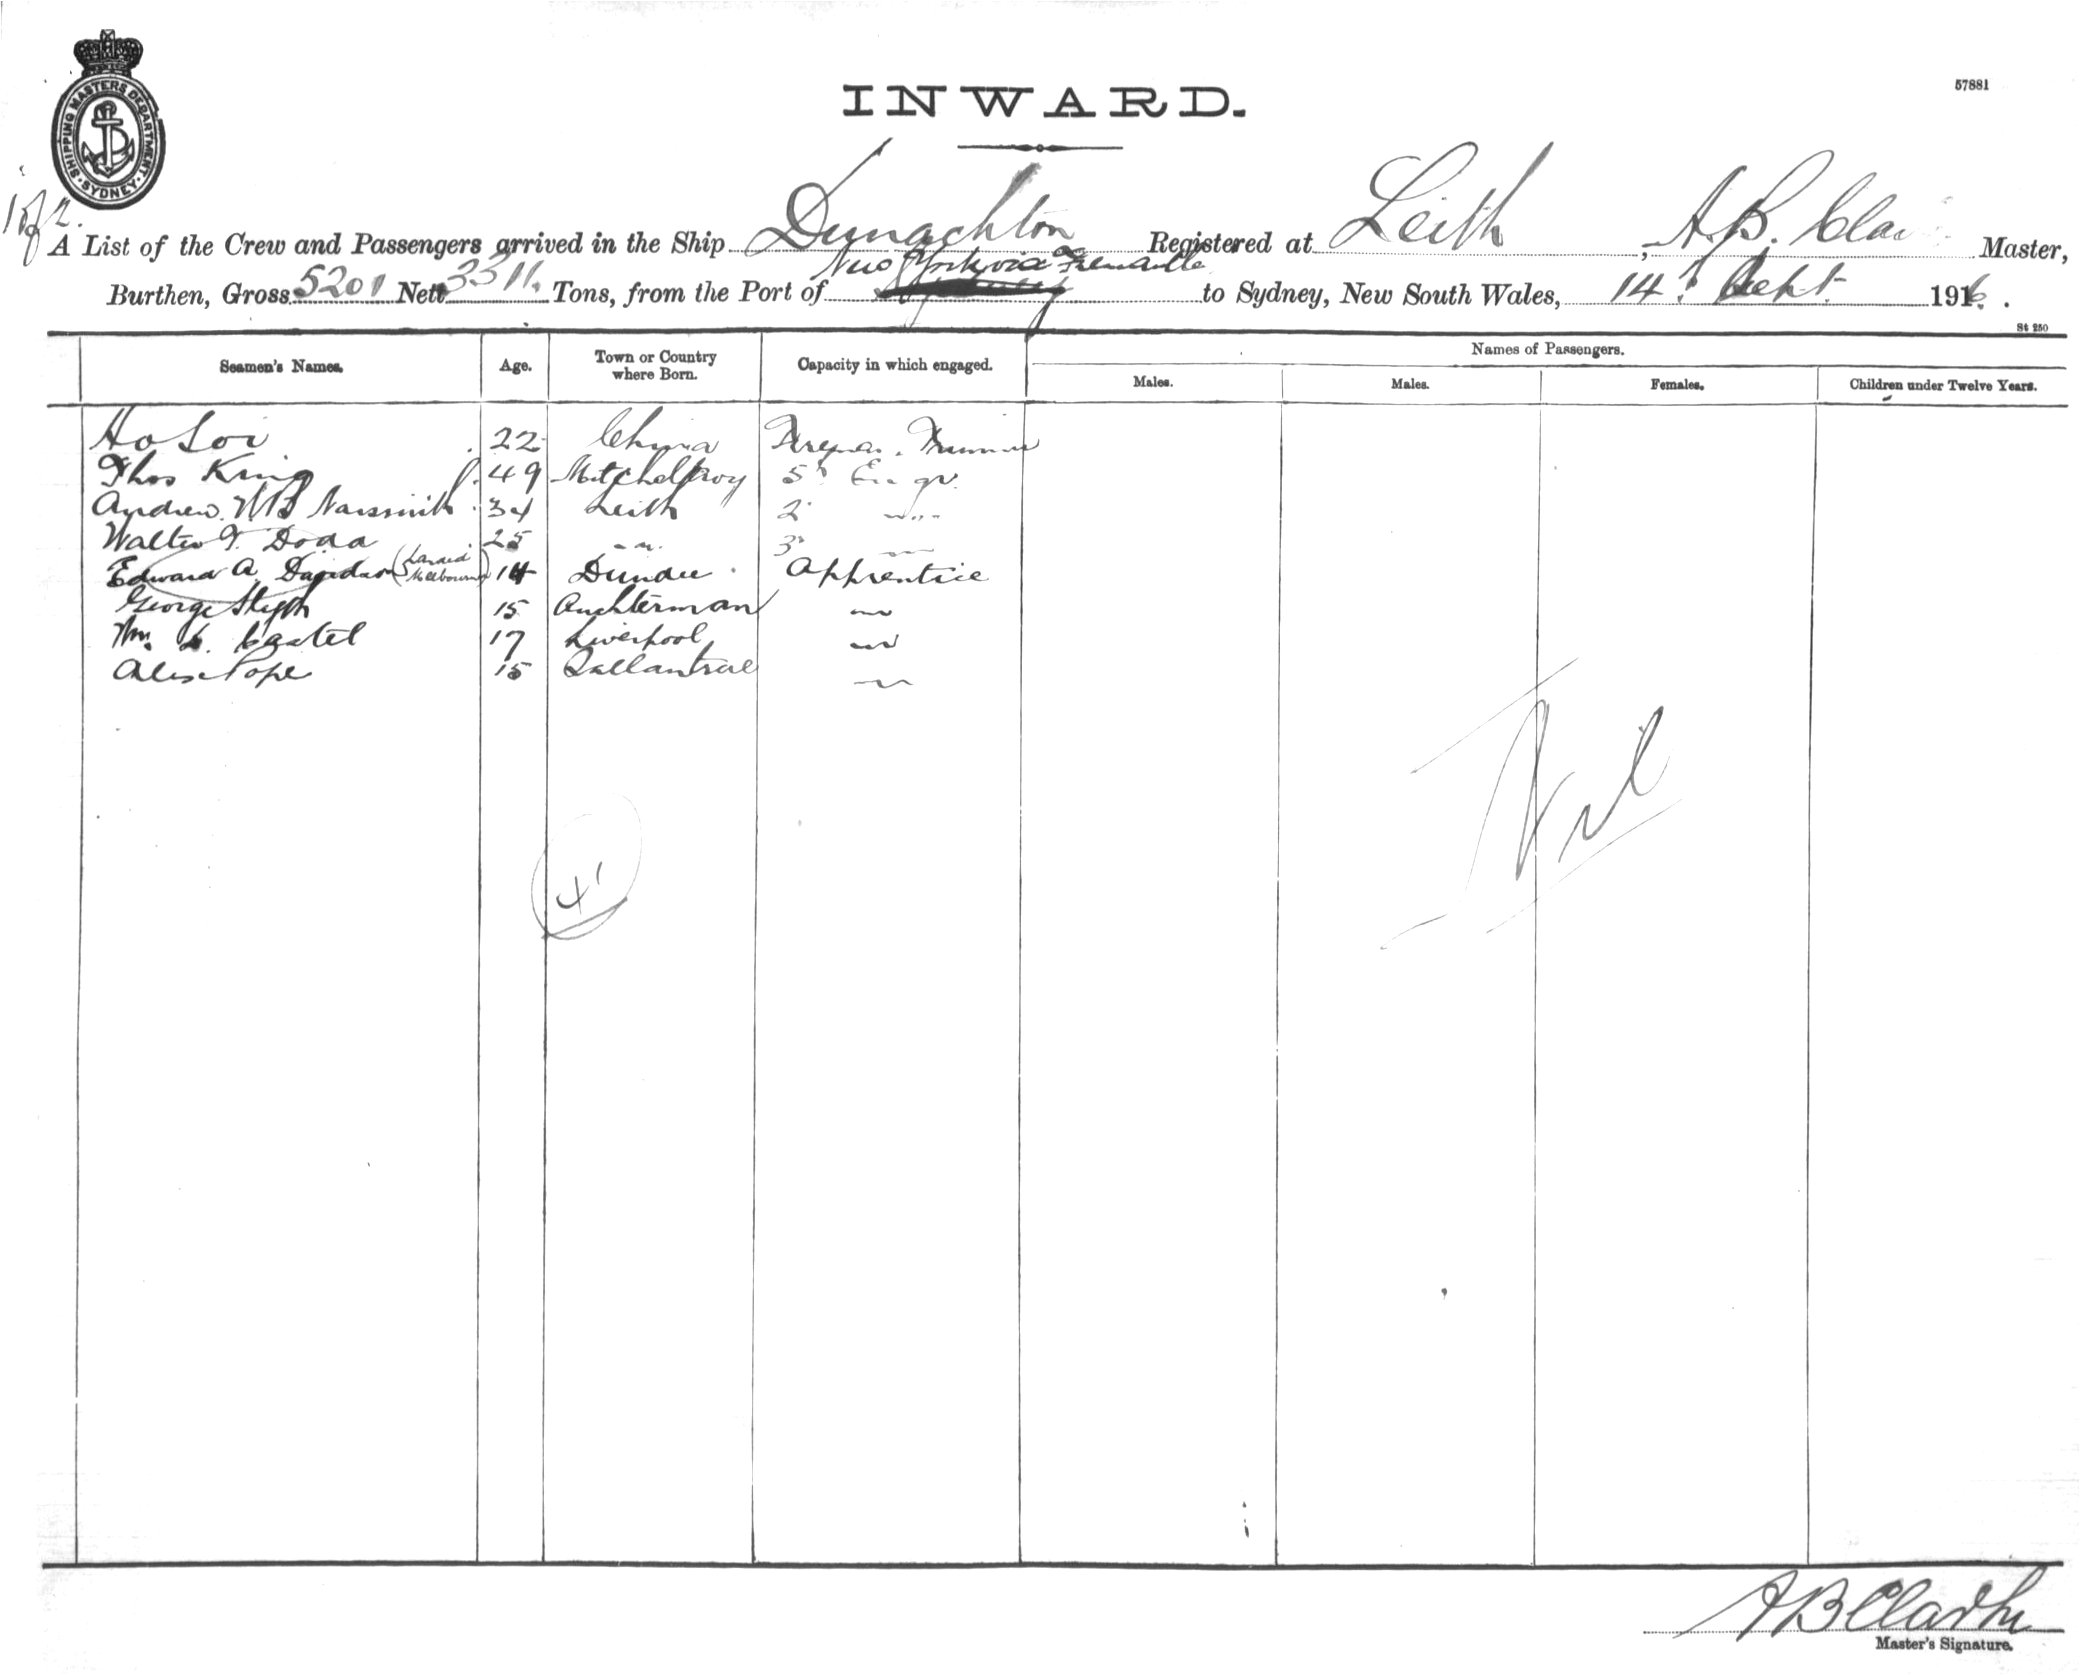 SHIPPING MASTERS DEPARTMENT SYDNEY
INWARD.
57881
1 of 2.
A List of the Crew and Passengers arrived in the Ship Dunachton Registered at Leith, A. B. Master,
New York via Fremantle
Burthen, Gross 5201 Nett 3311. Tons, from the Port of to Sydney, New South Wales, 14th Sept. 1916.
St 250
Seamen's Names. Age. Town or Country where Born. Capacity in which engaged. Names of Passengers.
Males. Males. Females. Children under Twelve Years.
Ho Loi 22 China
Thos King 49 5th Engr.
Andrew 34 Leith 2 " "
Walter 25 " " 3 "
Edward A. Davidson (Landed Melbourne) 14 Dundee Apprentice
George 15 "
Wm. Castel 17 Liverpool "
Alex Pope 15 Ballantrae "
Nil
41
A B Clarke
Master's Signature.